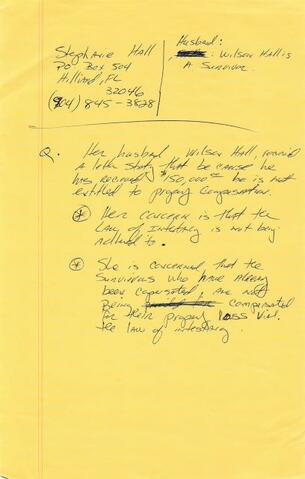 Stephanie Hall
PO Box 504
Hilliard, FL
32046
(904) 845-3828
Husband:
Wilson Hall is
A Survivor
Q. Her husband, Wilson Hall, received
a letter stating that because he
has received $150,000 he is not
entitled to property compensation.
* Her concern is that the
Law of Intestacy is not being
Adhered to.
* She is concerned that the
Survivors who have Already
been compensated, are not
Being compensated
for their property loss via
the law of intestacy.